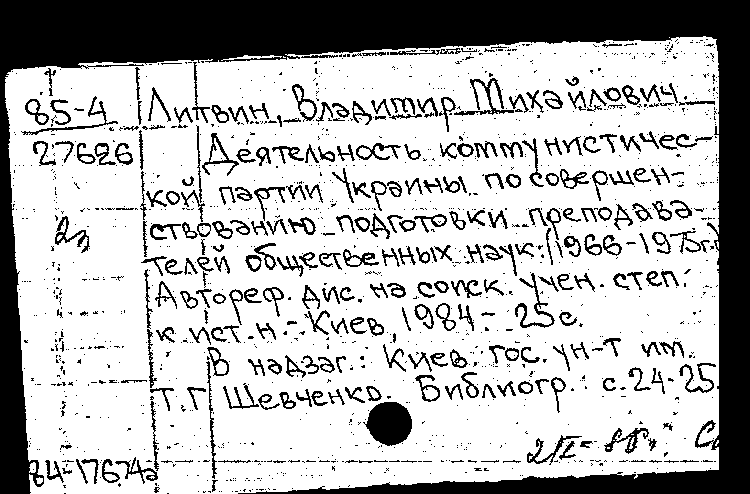 85-4 Литвин, Владимир Михайлович.
27626 Деятельность коммунистичес-
кой партии Украины по совершен-
ствованию подготовки преподава-
2д
телей общественных наук: (1966-1975гг.)
Автореф. дис. на соиск. учен. степ.
к. ист. н. - Киев, 1984. - 25 с.
В надзаг.: Киев. гос. ун-т им.
Т.Г. Шевченко. Библиогр.: с. 24-25.
84-17674а